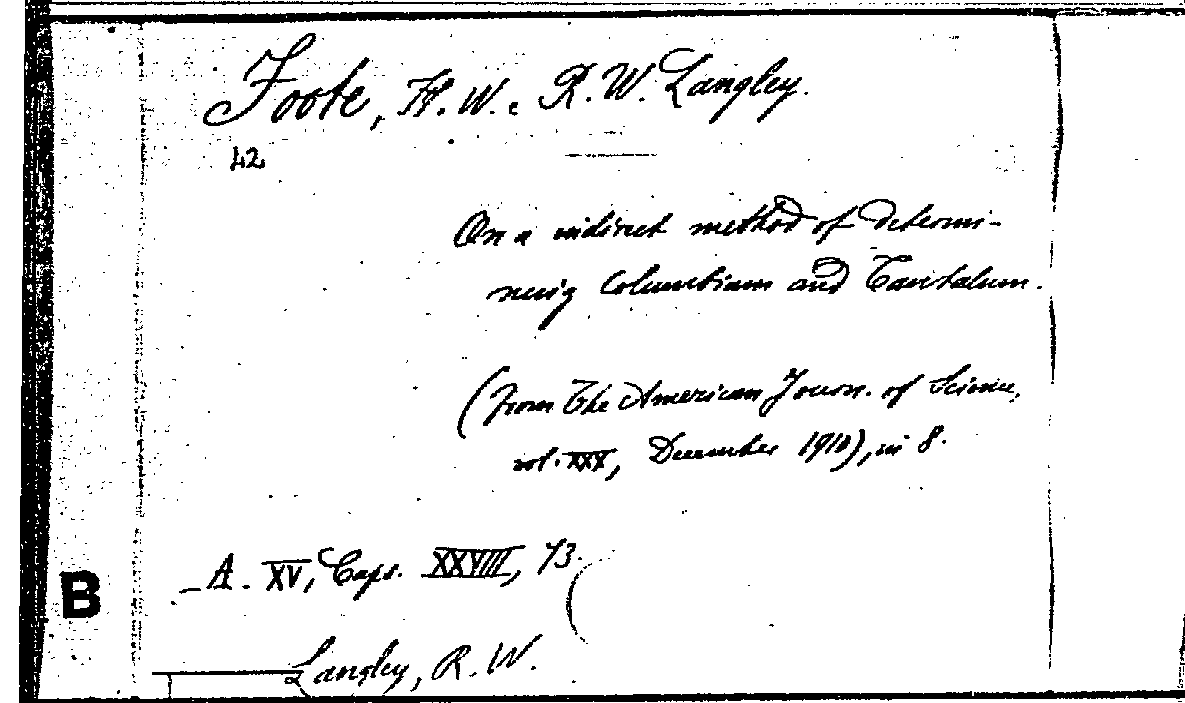 Foote, H. W. e R. W. Langley.
42
On a indirect method of determi-
ning Columbium and Tantalum.
(from the American Journ. of Science,
vol. XXX, December 1910), in 8.
A. XV, Caps. XXXVIII, 73.
B
Langley, R. W.